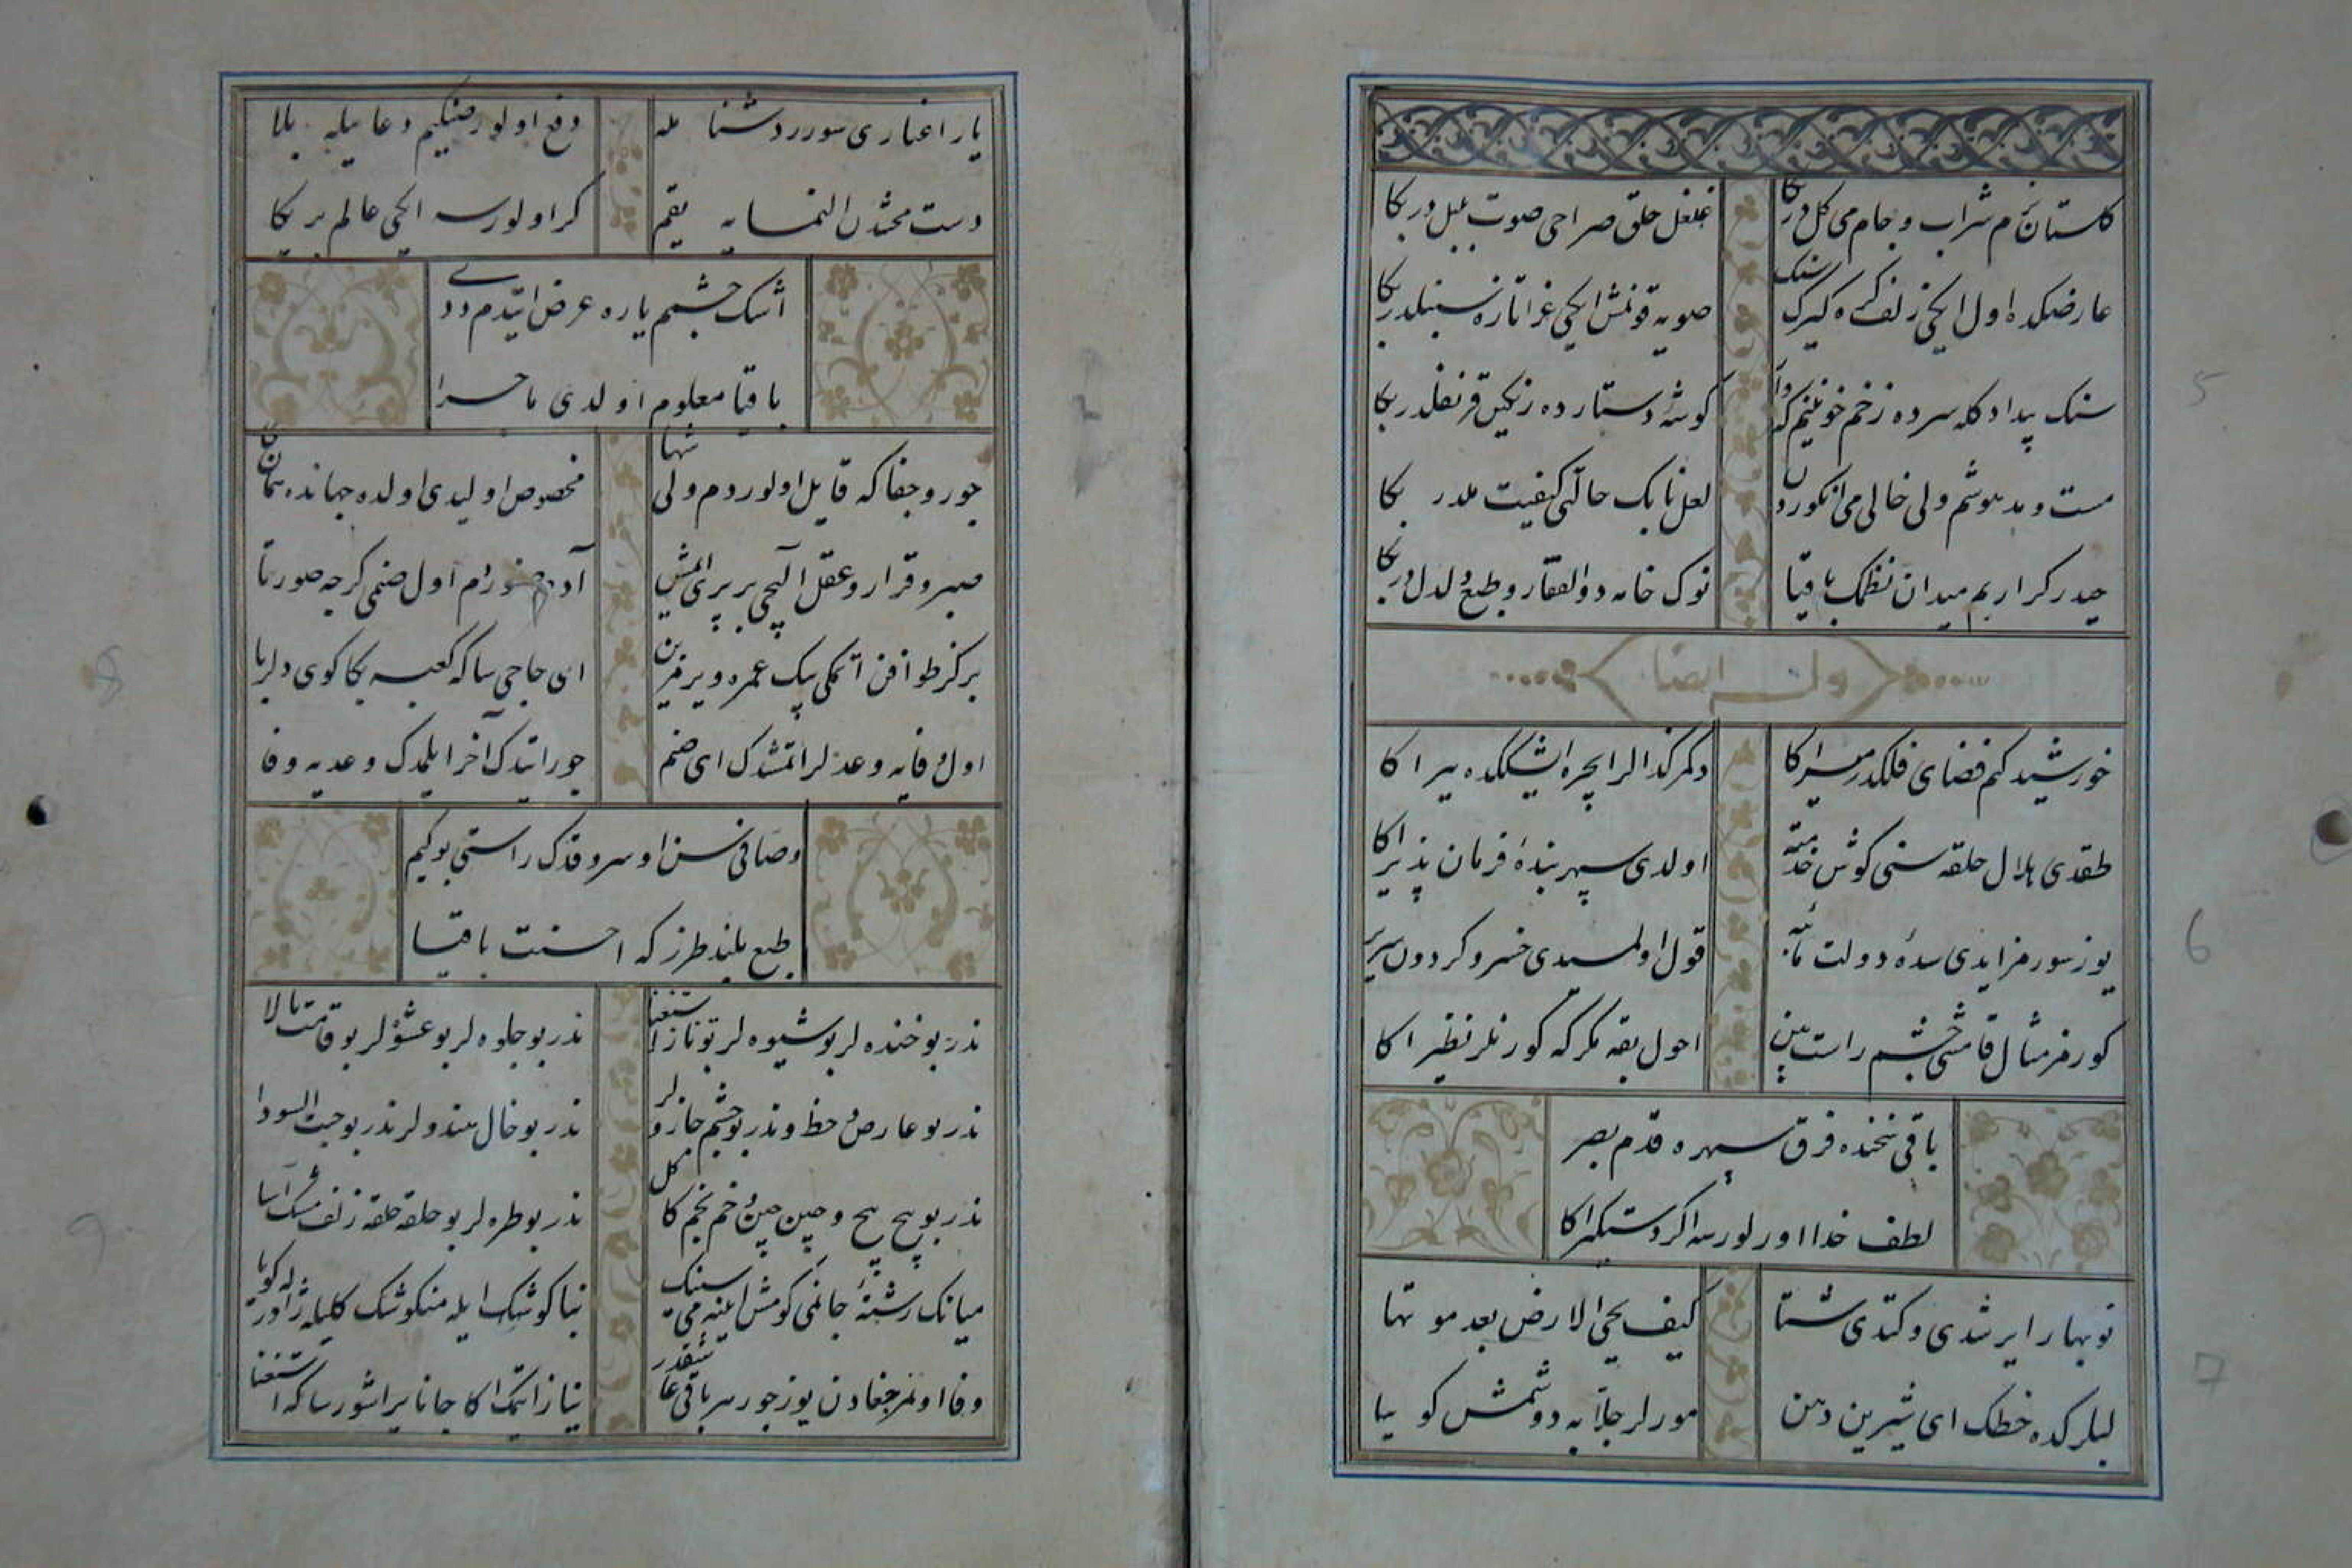 گلستان بزم شراب و جام می گل در بکا
غلغل حلق صراحی صوت بلبل در بکا
عارضکده اول ایکی زلف کره گیرک سنک
صویه قونمش ایکی غرا تازه سنبلدر بکا
سنک بیداد کله سرده زخم خونینم که وار
گوشه دستارده رنگین قرنفلدر بکا
مست و مدهوشم ولی خالی می انکورد ن
لعل نابک حالتی کیفیت ملدر بکا
حیدر کرار یم میدان نظمک باقیا
نوک خامه ذوالفقار و طبع دلدل در بکا
وله ایضا
خورشید کم فضای فلکدر مسیر اکا
دکمز کذالر ایچره ایشیککده یر اکا
طقدی هلال حلقه سنی کوش خدمته
اولدی سپهر بنده فرمان پذیر اکا
یوز سورمز ایدی سده دولت مآبنه
قول اولمسیدی خسرو کردون سریر
کورمز مثال قامتنی چشم راست بین
احول بقه مکر که کورنلر نظیر اکا
باقی نهنده فرق سپهره قدم بصر
لطف خدا اورلورسه اکر دستکیر اکا
نوبهار ایرشدی و کتدی شتا
کیف یحیی الارض بعد موتها
لبلرکده خطک ای شیرین دهن
مورلر جلابه دوشمش کوییا
یار اغیاری سورر دشنامله
دفع اولورمش کیم دعا یله بلا
دست محشدن النمسا یه یقیم
کر اولورسه ایکی عالم بر یکا
اشک چشمم یاره عرض ایتدم ددی
باقیا معلوم اولدی ماجرا
جور و جفاکه قایل اولوردم ولی شها
مخصوص اولیدی اولده جهانده همان
صبر و قرار و عقل الیجی بر پری ایمش
آدم صنوردم اول صنمی کرچه صورتا
بر کز طوافن اتمکی بیک عمره ویرمزین
ای حاجی سا که کعبه بکا کوی دلربا
اول وفایه وعده لر اتمشدک ای صنم
جور ایتدک آخر ایلمدک وعدیه وفا
وصافی سن او سرو قدک راستی بو کیم
طبع بلند طرز که احسنت باقیا
ندر بو خنده لر بو شیوه لر بو ناز استغنا
ندر بو جلوه لر بو عشوه لر بو قامت بالا
ندر بو عارض و خط و ندر بو چشم جادولر
ندر بو خال هندولر ندر بو حبت السودا
ندر بو پیچ پیچ و چین چین و خم بخم کاکل
ندر بو طره لر بو حلقه حلقه زلف مشک آسا
میانک رشته جانمی کومش آینه می سینک
بناکوشک ایله منکوشک کلیله ژاله در کویا
وفا اومز جفادن یوز چورمز باقی عاشقدر
نیاز ایتمک اکا جانا یراشور سا که استغنا